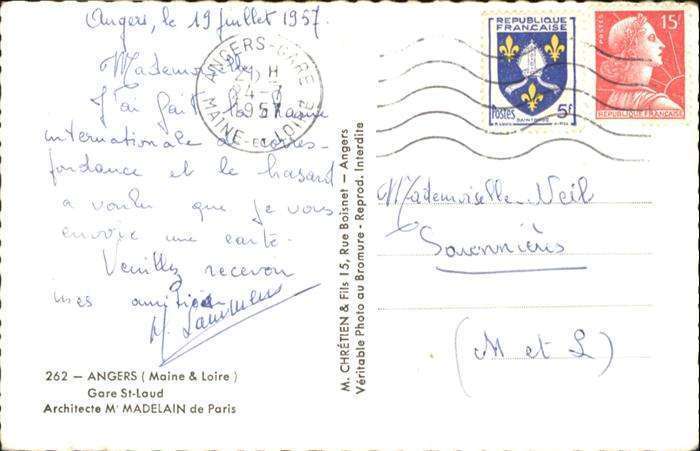 Angers, le 19 juillet 1957.
Mademoiselle,
J'ai fait la chaine
internationale de corres-
pondance et le hasard
a voulu que je vous
envoie une carte.
Veuillez recevoir
mes amitiés
262 — ANGERS (Maine & Loire)
Gare St-Laud
Architecte Mr MADELAIN de Paris
M. CHRÉTIEN & Fils 15, Rue Boisnet — Angers
Véritable Photo au Bromure - Reprod. Interdite
ANGERS-GARE
24-7
1957
MAINE-ET-LOIRE
RÉPUBLIQUE
FRANÇAISE
POSTES 5F
SAINTONGE
POSTES
15F
REPUBLIQUE FRANÇAISE
Mademoiselle Neil
Savonnières
(M et L)